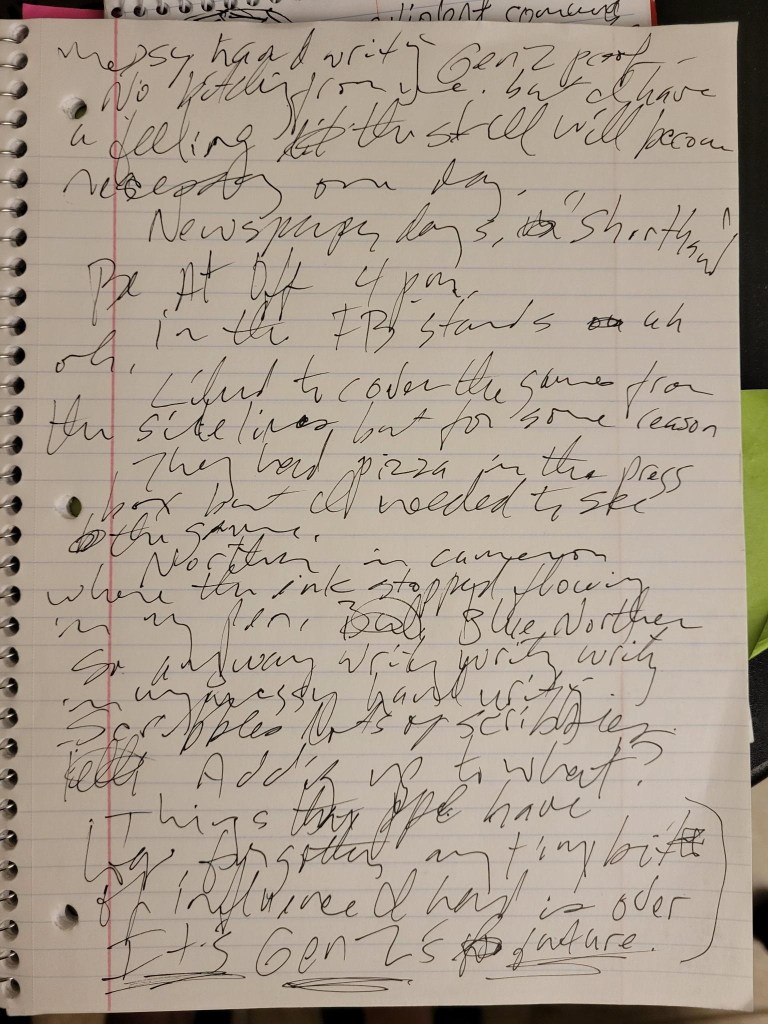 violent command
messy hand writing Gen Z proof
No kidding from me. but I have
a feeling this still will become
necessary one day.
Newspaper days, "Shorthand"
Be At Off 4 pm.
in the FB stands uh
oh.
Liked to cover the games from
the sidelines, but for some reason
They had pizza in the press
box but I needed to see
the game.
Northern in cameron
where the ink stopped flowing
in my pen, Blue Northern
So anyway writing writing writing
in my messy hand writing
Scrabbles lots of scribbles
Adds up to what?
Things ppl have
long forgotten any tiny bit
of influence I had is over
It's Gen Z's future.